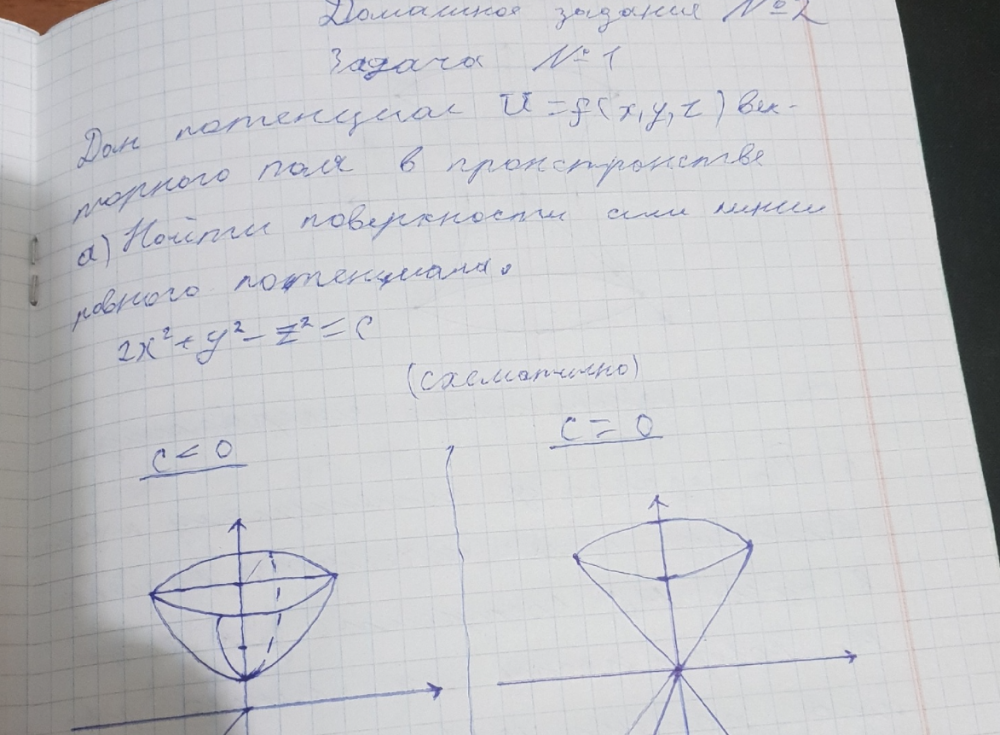 Домашнее задание №2
Задача №1
Дан потенциал U = f(x,y,z) век-
торного поля в пространстве
а) Найти поверхности или линии
равного потенциала.
2x² + y² - z² = c
(схематично)
c < 0
c = 0